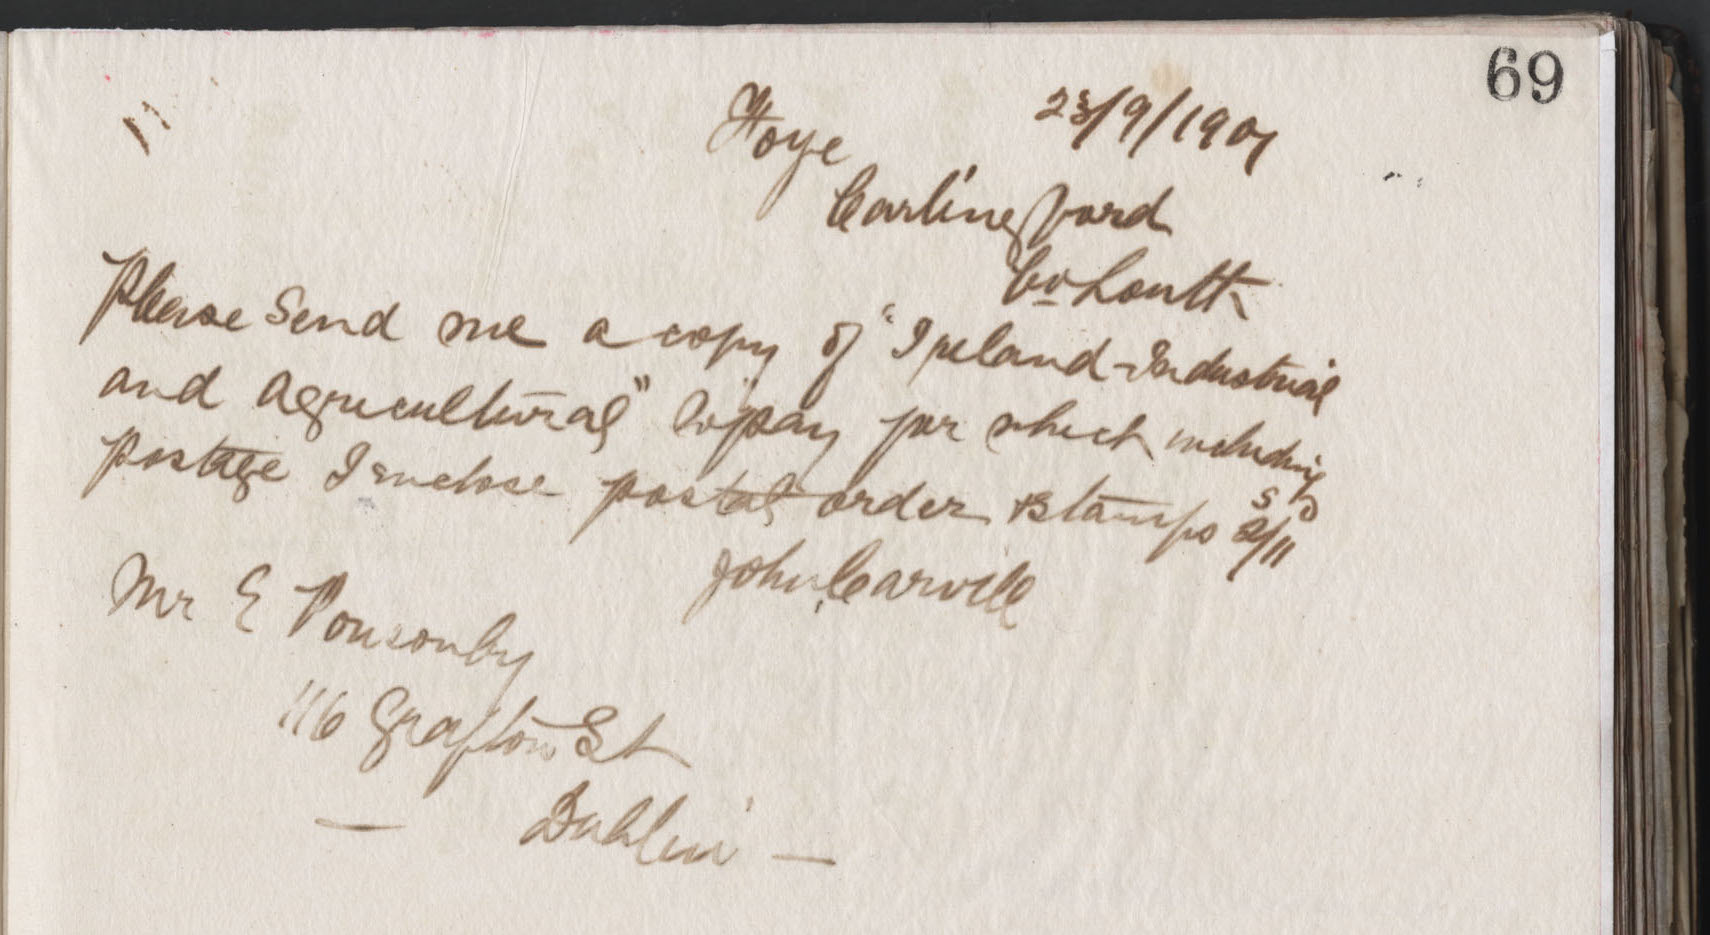 69
Foye 23/9/1901
Carlingford
Co Louth
Please Send me a copy of "Ireland-Industrial
and Agricultural" To pay for which including
postage I enclose postal order & stamps s d 2/11
John Carvill
Mr E Ponsonby
116 Grafton St
— Dublin —